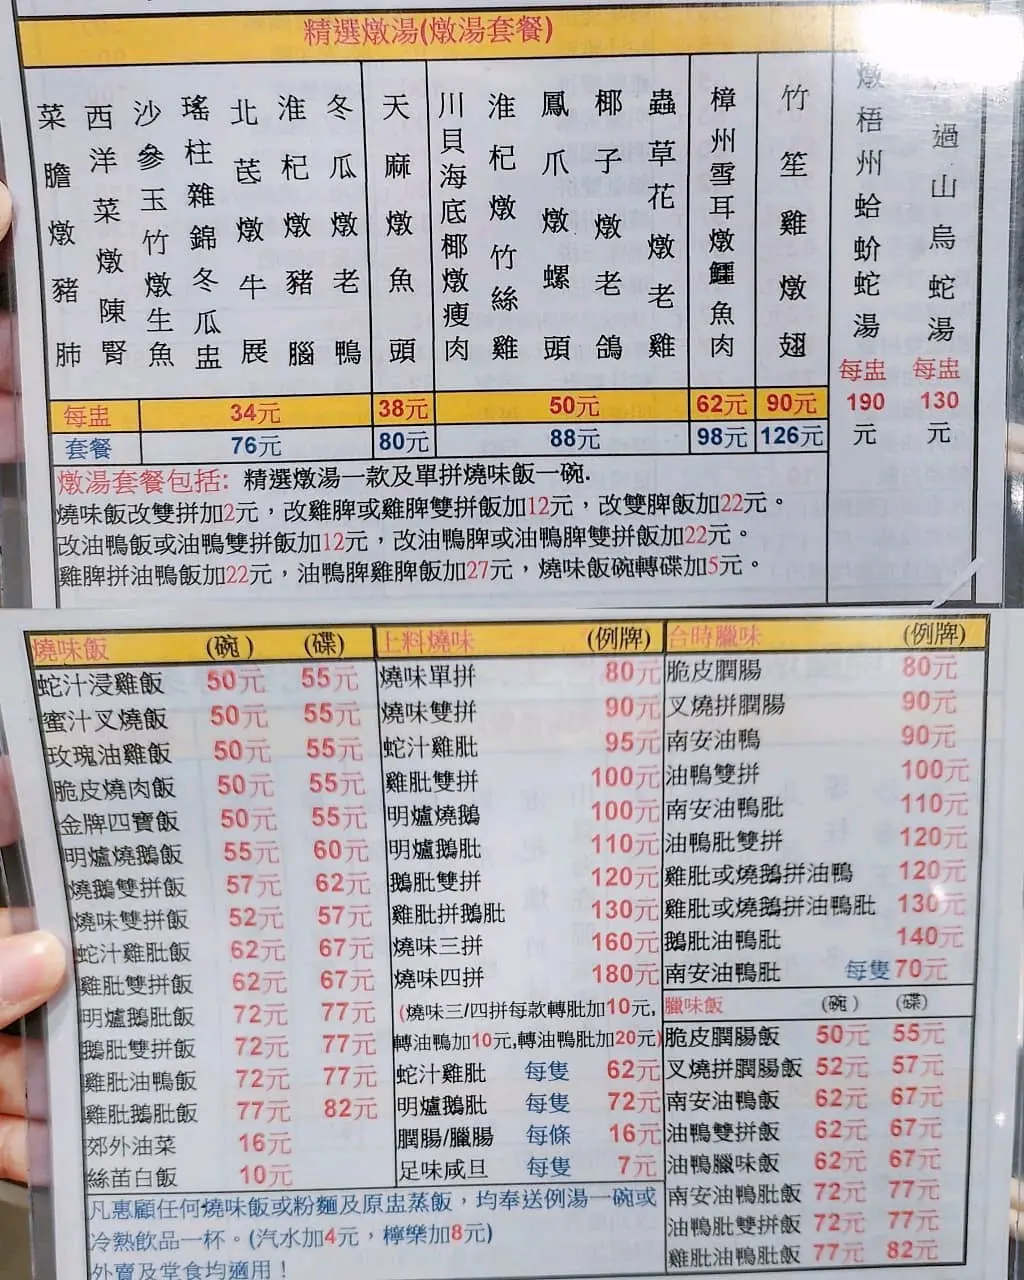 精選燉湯(燉湯套餐)
菜膽燉豬肺
西洋菜燉陳腎
沙參玉竹燉生魚
瑤柱雜錦冬瓜盅
北芪燉牛展
淮杞燉豬腦
冬瓜燉老鴨
天麻燉魚頭
川貝海底椰燉瘦肉
淮杞燉竹絲雞
鳳爪燉螺頭
椰子燉老鴿
蟲草花燉老雞
樟州雪耳燉鱷魚肉
竹笙雞燉翅
燉梧州蛤蚧蛇湯 每盅 190元
過山烏蛇湯 每盅 130元
每盅 34元 38元 50元 62元 90元
套餐 76元 80元 88元 98元 126元
燉湯套餐包括: 精選燉湯一款及單拼燒味飯一碗.
燒味飯改雙拼加2元，改雞脾或雞脾雙拼飯加12元，改雙脾飯加22元。
改油鴨飯或油鴨雙拼飯加12元，改油鴨脾或油鴨脾雙拼飯加22元。
雞脾拼油鴨飯加22元，油鴨脾雞脾飯加27元，燒味飯碗轉碟加5元。
燒味飯 (碗) (碟)
蛇汁浸雞飯 50元 55元
蜜汁叉燒飯 50元 55元
玫瑰油雞飯 50元 55元
脆皮燒肉飯 50元 55元
金牌四寶飯 50元 55元
明爐燒鵝飯 55元 60元
燒鵝雙拼飯 57元 62元
燒味雙拼飯 52元 57元
蛇汁雞肶飯 62元 67元
雞肶雙拼飯 62元 67元
明爐鵝肶飯 72元 77元
鵝肶雙拼飯 72元 77元
雞肶油鴨飯 72元 77元
雞肶鵝肶飯 77元 82元
郊外油菜 16元
絲苗白飯 10元
凡惠顧任何燒味飯或粉麵及原盅蒸飯，均奉送例湯一碗或
冷熱飲品一杯。(汽水加4元，檸樂加8元)
外賣及堂食均適用！
上料燒味 (例牌)
燒味單拼 80元
燒味雙拼 90元
蛇汁雞肶 95元
雞肶雙拼 100元
明爐燒鵝 100元
明爐鵝肶 110元
鵝肶雙拼 120元
雞肶拼鵝肶 130元
燒味三拼 160元
燒味四拼 180元
(燒味三/四拼每款轉肶加10元,
轉油鴨加10元,轉油鴨肶加20元)
蛇汁雞肶 每隻 62元
明爐鵝肶 每隻 72元
膶腸/臘腸 每條 16元
足味咸旦 每隻 7元
合時臘味 (例牌)
脆皮膶腸 80元
叉燒拼膶腸 90元
南安油鴨 90元
油鴨雙拼 100元
南安油鴨肶 110元
油鴨肶雙拼 120元
雞肶或燒鵝拼油鴨 120元
雞肶或燒鵝拼油鴨肶 130元
鵝肶油鴨肶 140元
南安油鴨肶 每隻70元
臘味飯 (碗) (碟)
脆皮膶腸飯 50元 55元
叉燒拼膶腸飯 52元 57元
南安油鴨飯 62元 67元
油鴨雙拼飯 62元 67元
油鴨臘味飯 62元 67元
南安油鴨肶飯 72元 77元
油鴨肶雙拼飯 72元 77元
雞肶油鴨肶飯 77元 82元